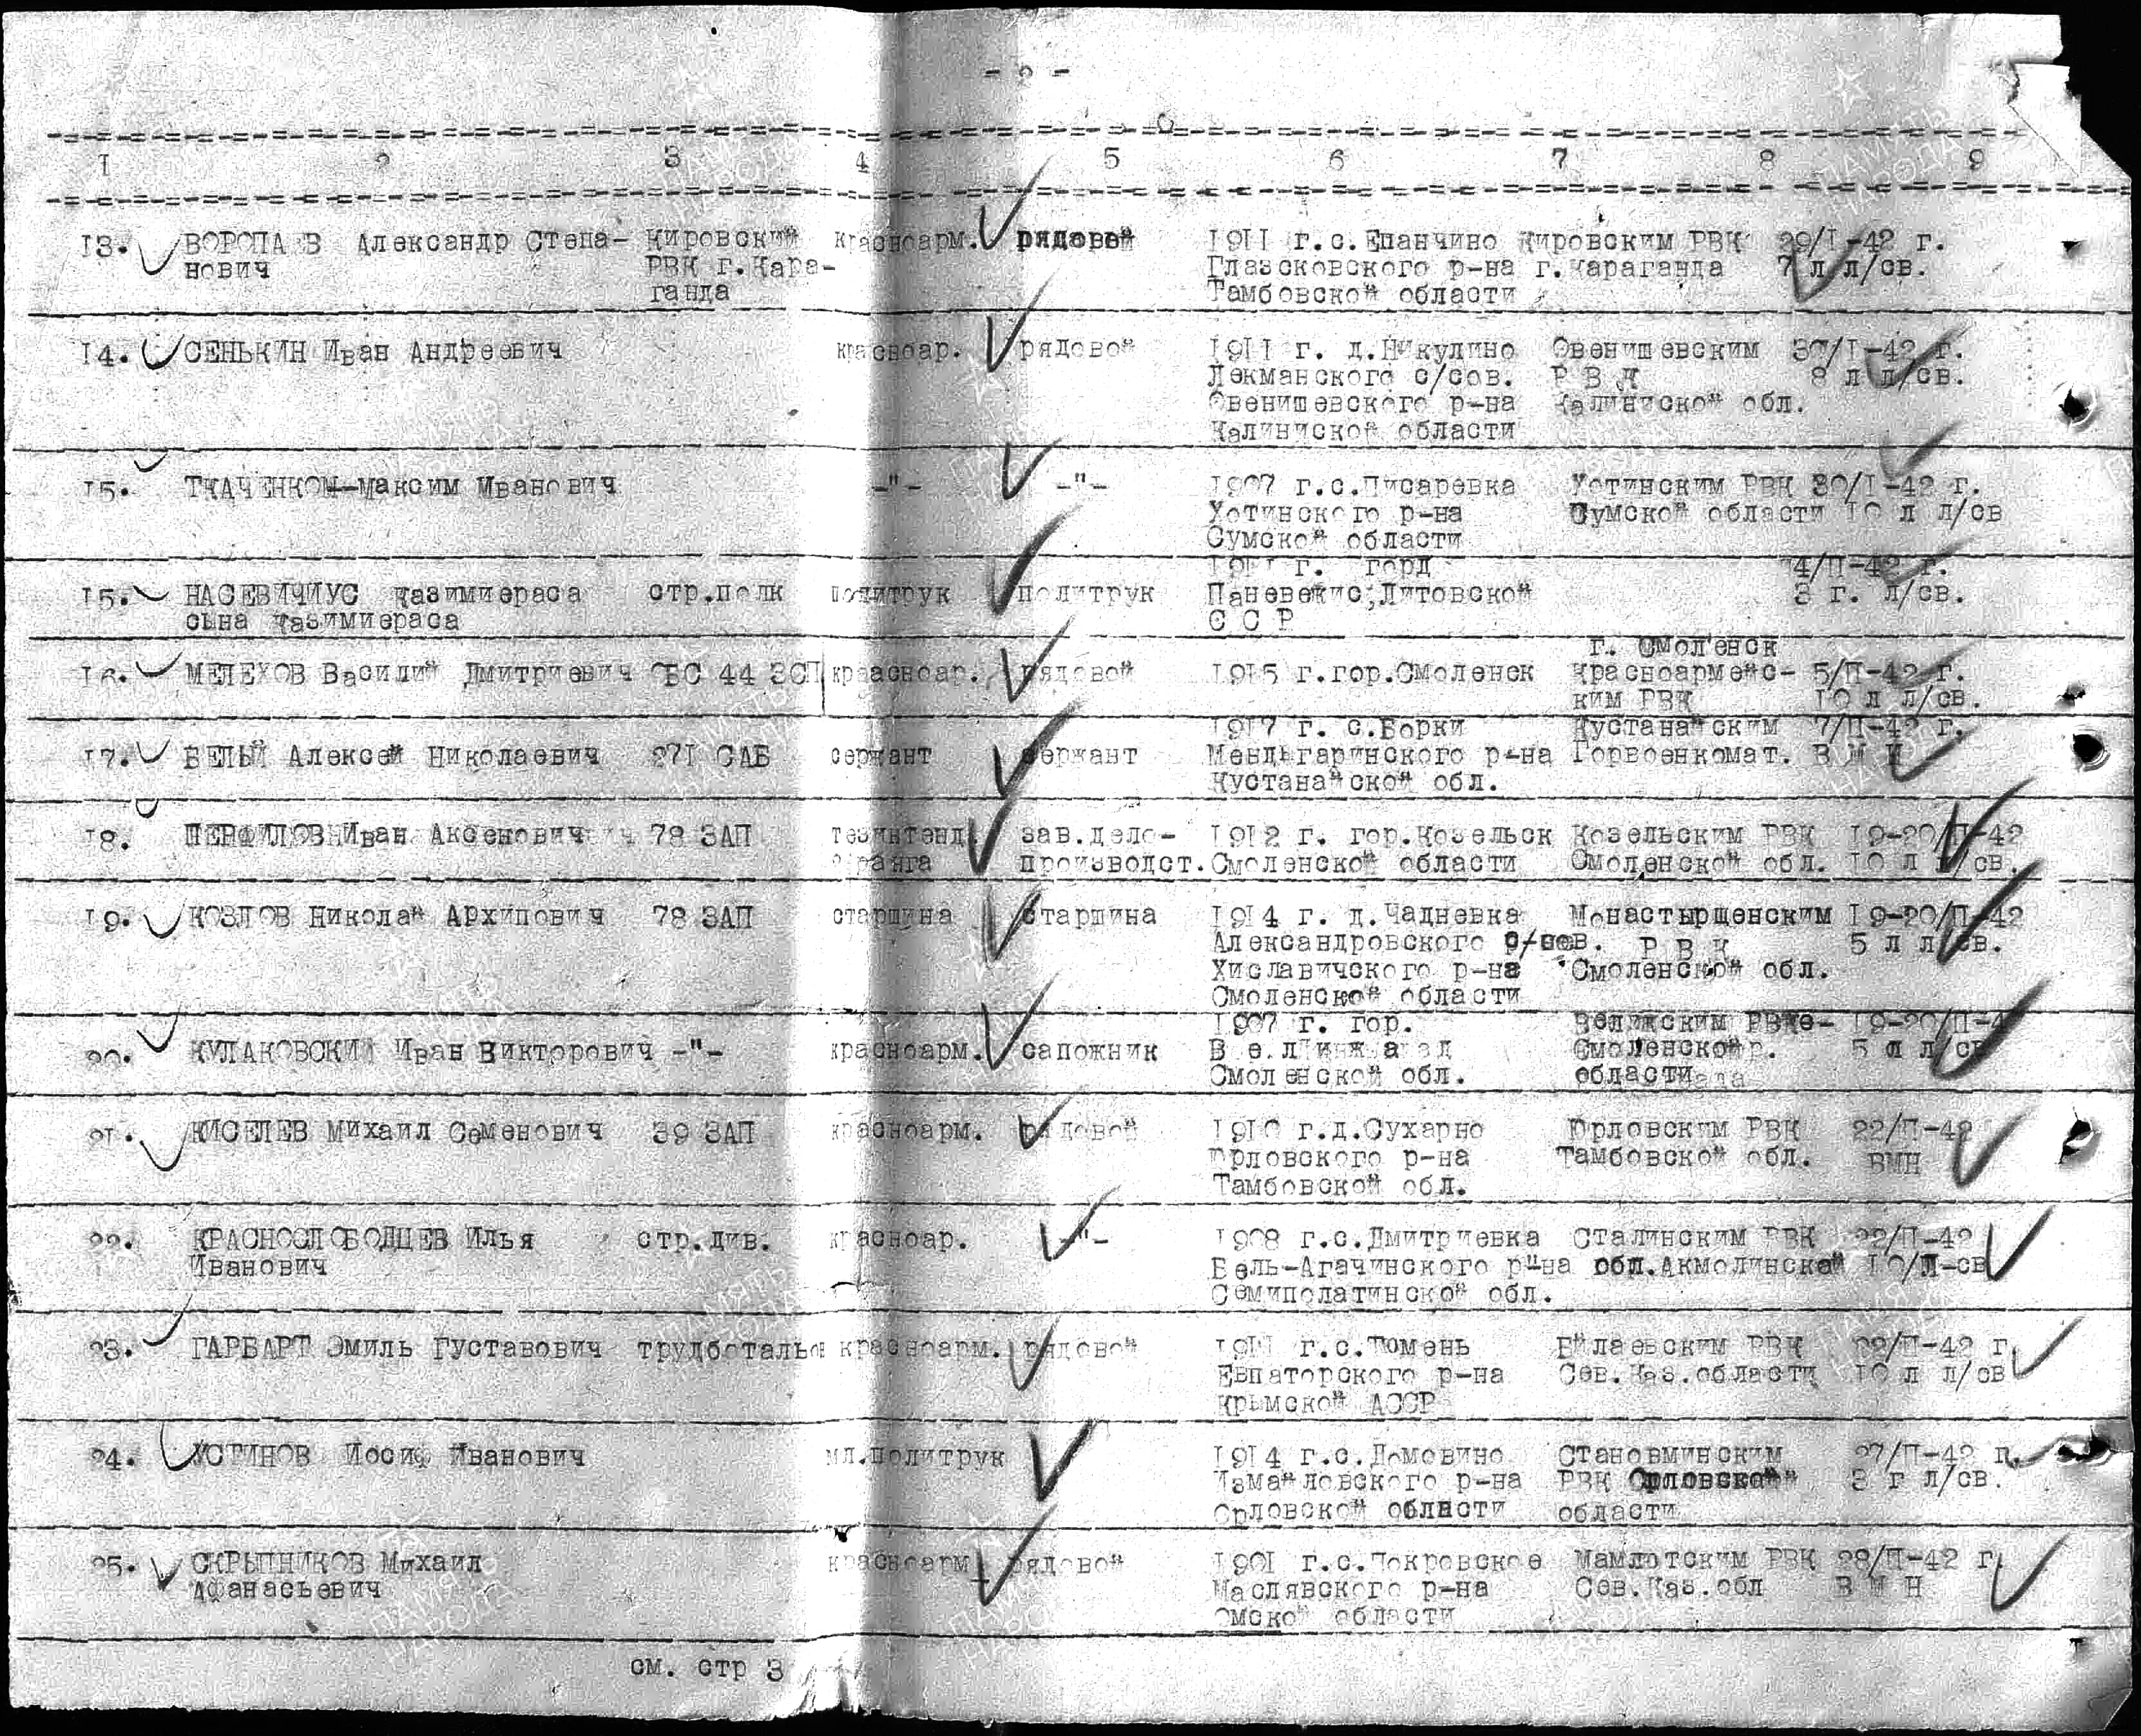 - 2 -
1 2 3 4 5 6 7 8 9
13. ВОРОПАЕВ Александр Степа- Кировский красноарм. рядовой 1911 г.с.Епанчино Кировским РВК 29/I-42 г.
нович РВК г.Кара- Глазсковского р-на г.Караганда 7 л л/св.
ганда Тамбовской области
14. СЕНЬКИН Иван Андреевич красноар. рядовой 1911 г. д.Никулино Овенишевским 30/I-42 г.
Лекманского с/сов. Р В К 8 л л/св.
Овенишевского р-на Калиниской обл.
Калиниской области
15. ТКАЧЕНКОМ-Максим Иванович -"- -"- 1907 г.с.Писаревка Хотинским РВК 30/I-42 г.
Хотинского р-на Сумской области 10 л л/св
Сумской области
1911 г. горд 4/П-42 г.
15. НАСЕВИЧИУС Казимиераса стр.полк политрук политрук Паневежис,Литовской 3 г. л/св.
сына Казимиераса С С Р
г. Смоленск
16. МЕЛЕХОВ Василий Дмитриевич ОБС 44 ЗСП красноар. рядовой 1915 г.гор.Смоленск Красноармейс- 5/П-42 г.
ким РВК 10 л л/св.
1917 г. с.Борки Кустанайским 7/П-42 г.
17. БЕЛЫЙ Алексей Николаевич 271 САБ сержант сержант Мендыгаринского р-на Горвоенкомат. В М Н
Кустанайской обл.
18. ПЕРФИЛОВ Иван Аксенович 78 ЗАП техинтенд. зав.дело- 1912 г. гор.Козельск Козельским РВК 19-20/П-42
2 ранга производст. Смоленской области Смоленской обл. 10 л л/св.
19. КОЗЛОВ Николай Архипович 78 ЗАП старшина старшина 1914 г. д.Чадневка Монастырщенским 19-20/П-42
Александровского с/сов. Р В К 5 л л/св.
Хиславичского р-на Смоленской обл.
Смоленской области
1907 г. гор. Велижским РВК 19-20/П-4
20. КУЛАКОВСКИЙ Иван Викторович -"- красноарм. сапожник В е л и ж Смоленской 5 л л/св
Смоленской обл. области
21. КИСЕЛЕВ Михаил Семенович 39 ЗАП красноарм. рядовой 1910 г.д.Сухарно Юрловским РВК 22/П-42
Юрловского р-на Тамбовской обл. ВМН
Тамбовской обл.
22. КРАСНОСЛОБОДЦЕВ Илья стр.див. красноар. -"- 1908 г.с.Дмитриевка Сталинским РВК 22/П-42
Иванович Бель-Агачинского р-на обл.Акмолинской 10/Л-св
Семиполатинской обл.
23. ГАРБАРТ Эмиль Густавович трудботальон красноарм. рядовой 1911 г.с.Тюмень Булаевским РВК 22/П-42 г.
Евпаторского р-на Сев.Каз.области 10 л л/св
Крымской АССР
24. УСТИНОВ Иосиф Иванович мл.политрук 1914 г.с.Домовино Становминским 27/П-42 г.
Измайловского р-на РВК Орловской 3 г л/св.
Орловской области области
25. СКРЫПНИКОВ Михаил красноарм рядовой 1901 г.с.Покровское Мамлютским РВК 28/П-42 г.
Афанасьевич Маслявского р-на Сев.Каз.обл В М Н
Омской области
см. стр 3